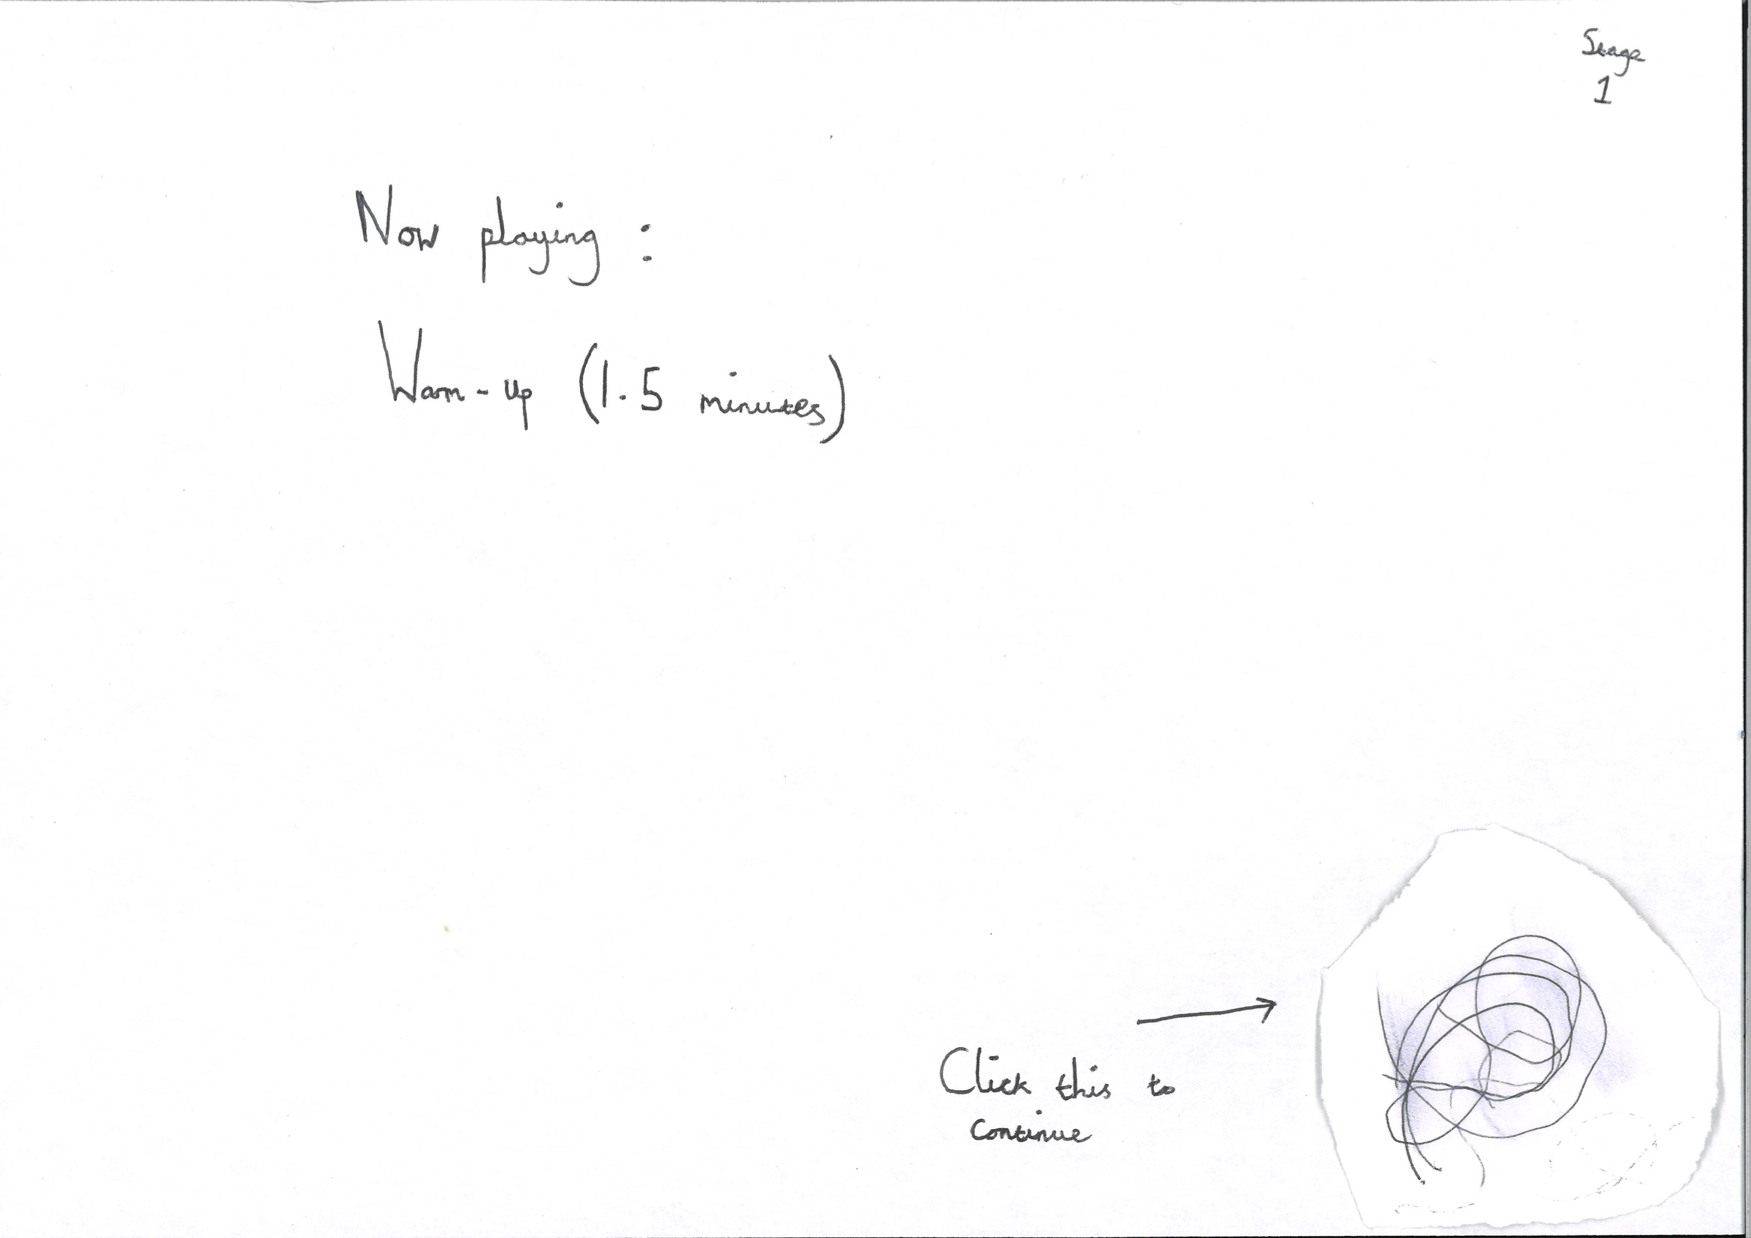 Stage
1
Now playing :
Warm-up (1.5 minutes)
Click this to
continue